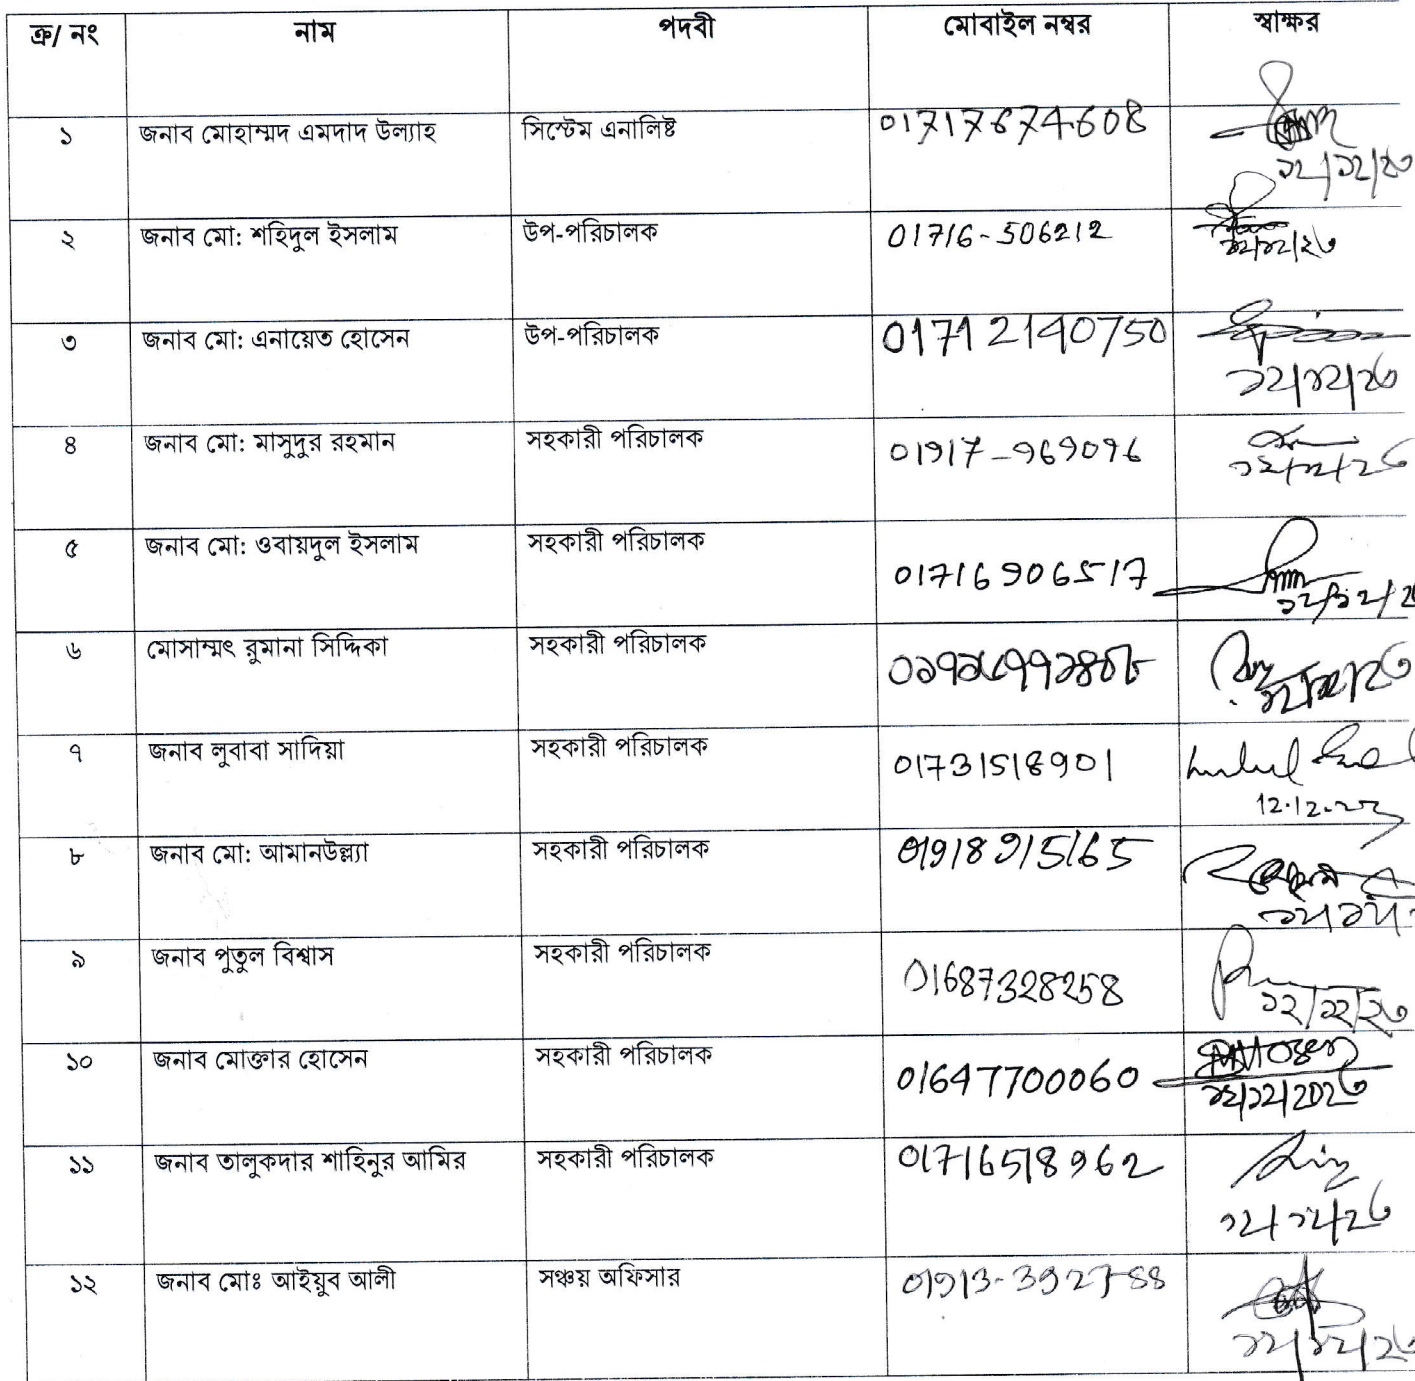 ক্র/ নং নাম পদবী মোবাইল নম্বর স্বাক্ষর
১ জনাব মোহাম্মদ এমদাদ উল্যাহ সিস্টেম এনালিষ্ট 01717674608
১২/১২/২৩
২ জনাব মো: শহিদুল ইসলাম উপ-পরিচালক 01716-506212
১২/১২/২৩
৩ জনাব মো: এনায়েত হোসেন উপ-পরিচালক 01712140750
১২/১২/২৩
৪ জনাব মো: মাসুদুর রহমান সহকারী পরিচালক 01917-969096
১২/১২/২৩
৫ জনাব মো: ওবায়দুল ইসলাম সহকারী পরিচালক 01716906517
১২/১২/২
৬ মোসাম্মৎ রুমানা সিদ্দিকা সহকারী পরিচালক
১২/১২/২৩
৭ জনাব লুবাবা সাদিয়া সহকারী পরিচালক 01731518901
12.12.23
৮ জনাব মো: আমানউল্ল্যা সহকারী পরিচালক 01918915165
১২/১২/
৯ জনাব পুতুল বিশ্বাস সহকারী পরিচালক 01687328258
১২/১২/২৩
১০ জনাব মোক্তার হোসেন সহকারী পরিচালক 01647700060
১২/১২/২০২৩
১১ জনাব তালুকদার শাহিনুর আমির সহকারী পরিচালক 01716518962
১২/১২/২৩
১২ জনাব মোঃ আইয়ুব আলী সঞ্চয় অফিসার 01913-392788
১২/১২/২৩